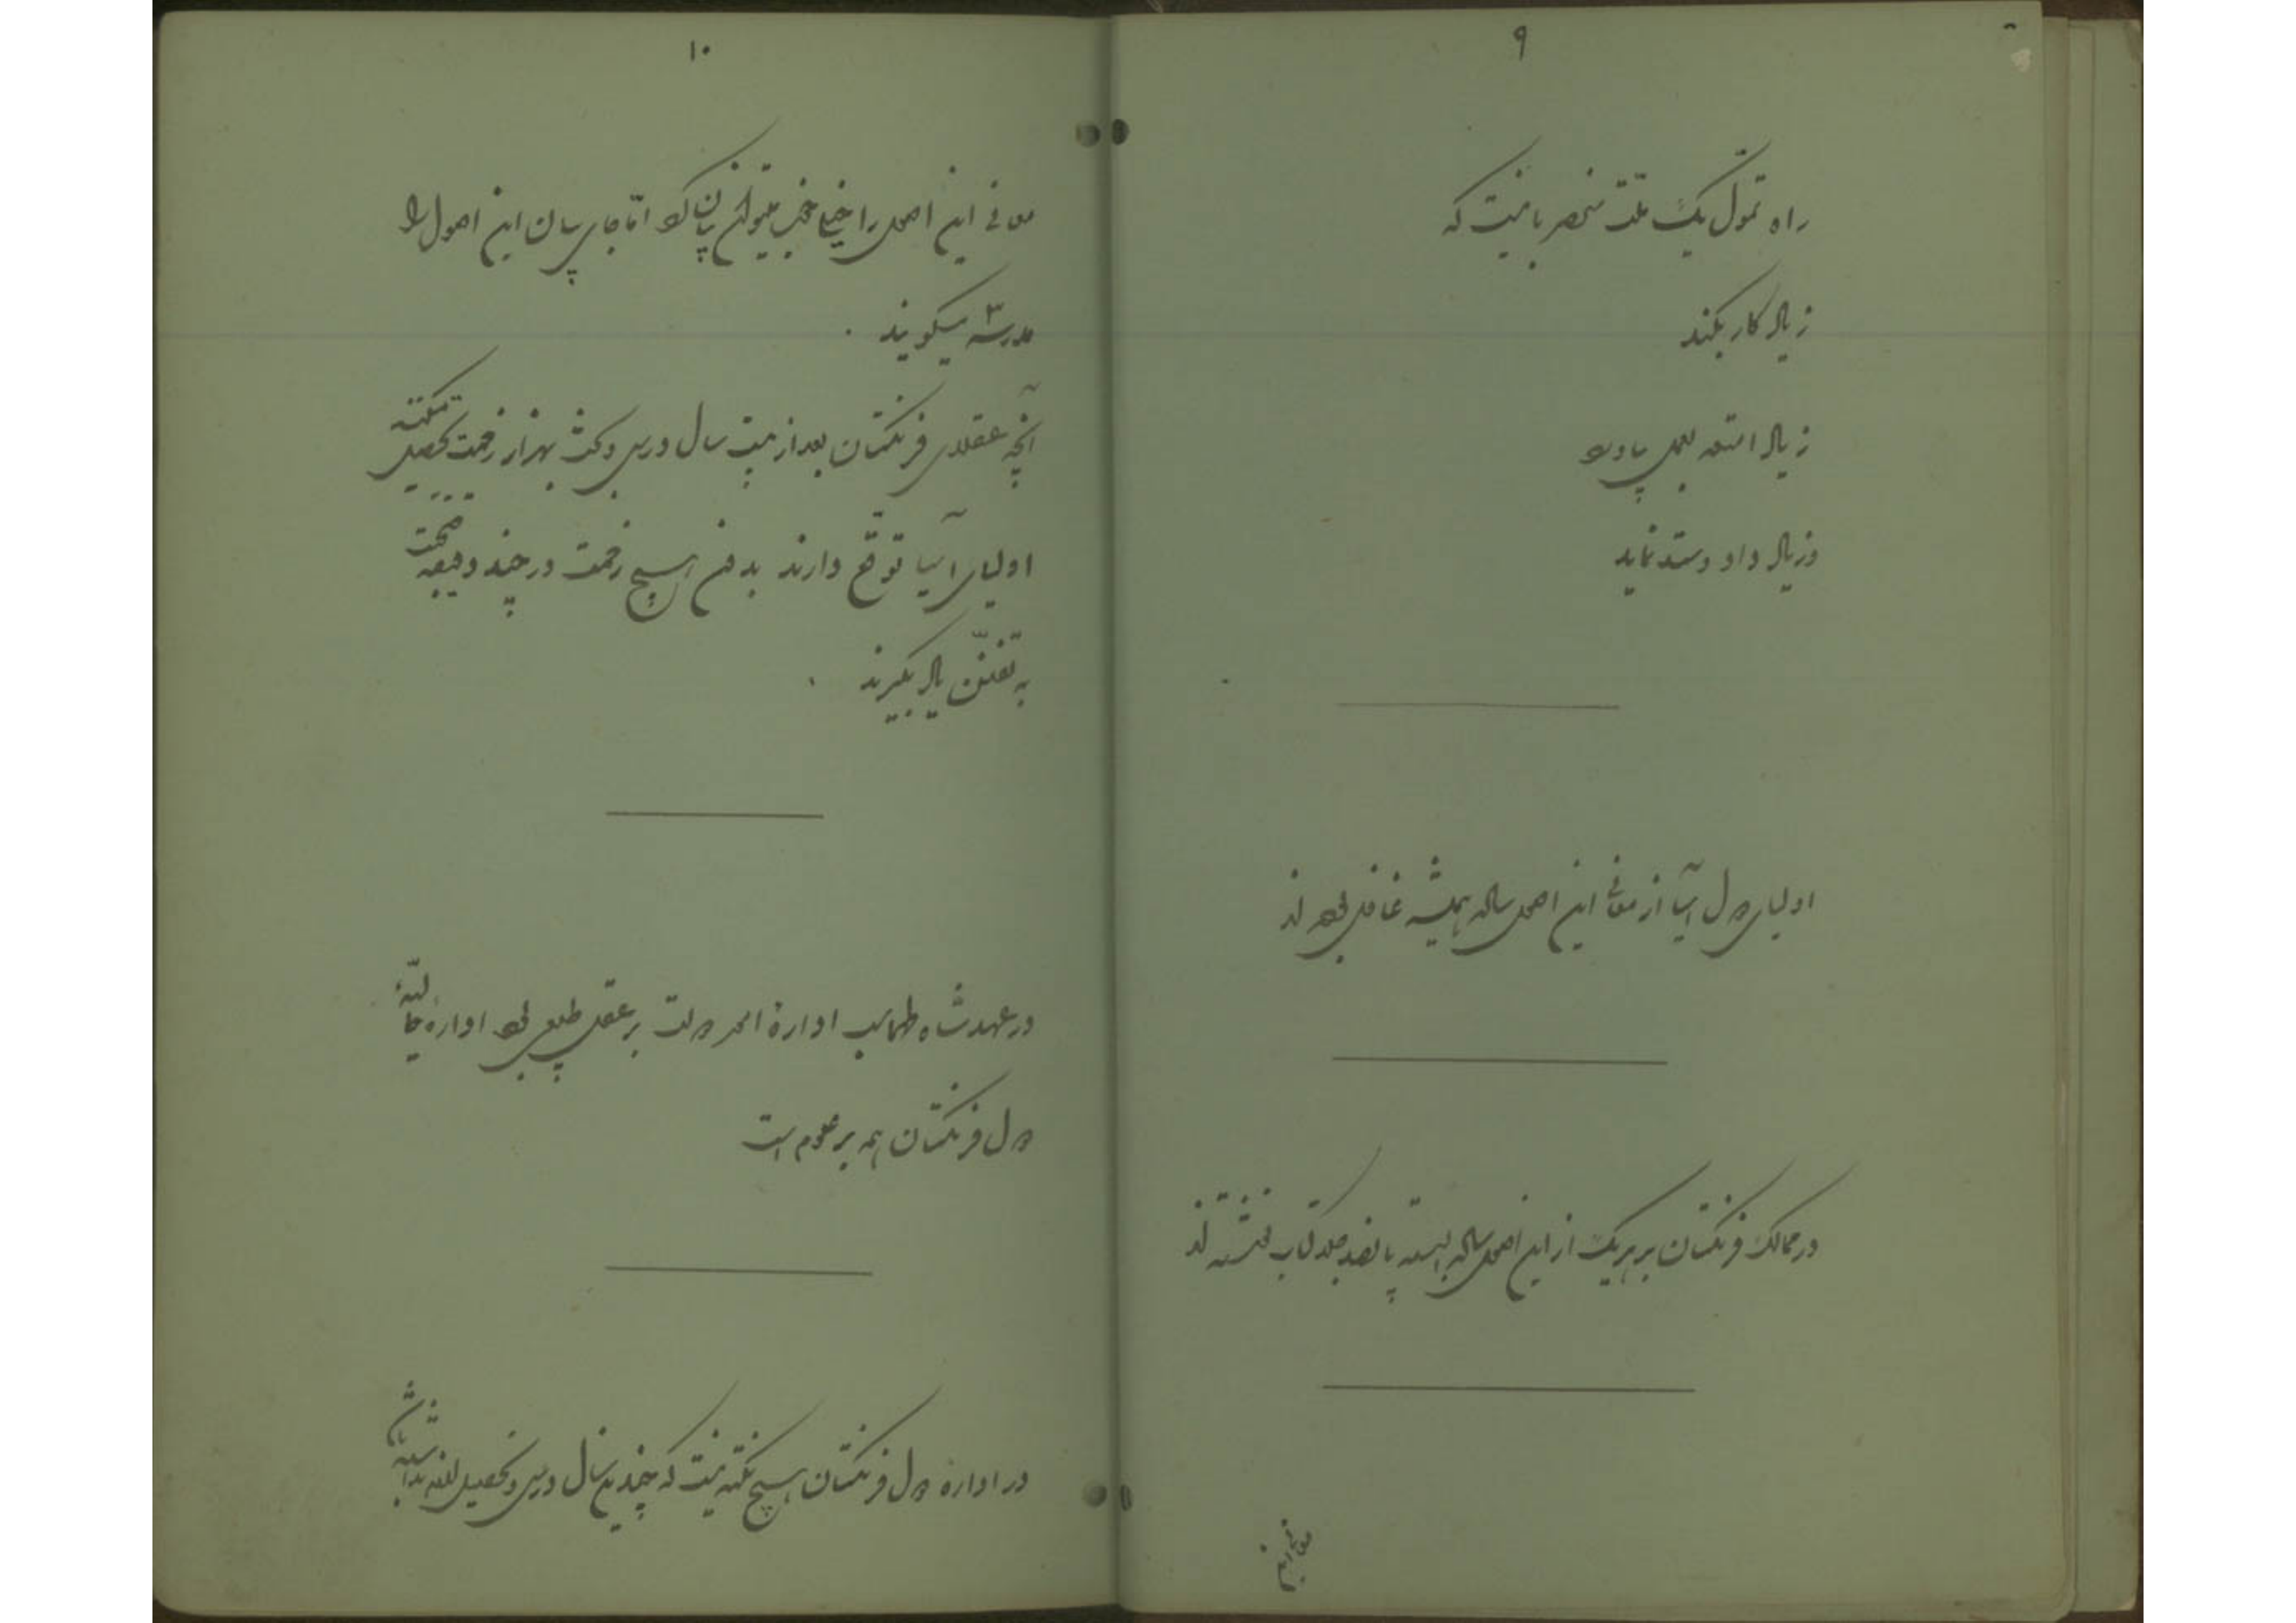 ۹
راه تموّل یک ملت منحصر باینست که
زیاد کار بکند
زیاد امتعه بعمل بیاورد
و زیاد داد و ستد نماید
اولیای دول آسیا از معانی این اصول ساده همیشه غافل بوده‌اند
در ممالک فرنگستان بر هر یک از این اصول ساده البته پانصد جلد کتاب نوشته‌اند
معانی این
۱۰
معانی این اصول را خیلی خوب میتوان بیان کرد امّا جای بیان این اصول را
مدرسه میگویند .
آنچه عقلای فرنگستان بعد از بیست سال درس و بحث بهزار زحمت تحصیل میکنند
اولیای آسیا توقع دارند بدون هیچ زحمت در چند دقیقه صحبت
به تفنّن یاد بگیرند .
در عهد شاه طهماسب ادارهٔ امور دولت بر عقل طبیعی بود ادارهٔ حالیّهٔ
دول فرنگستان همه بر علوم است
در ادارهٔ دول فرنگستان هیچ نکته نیست که چندین سال درس و تحصیل لازم نداشته باشد